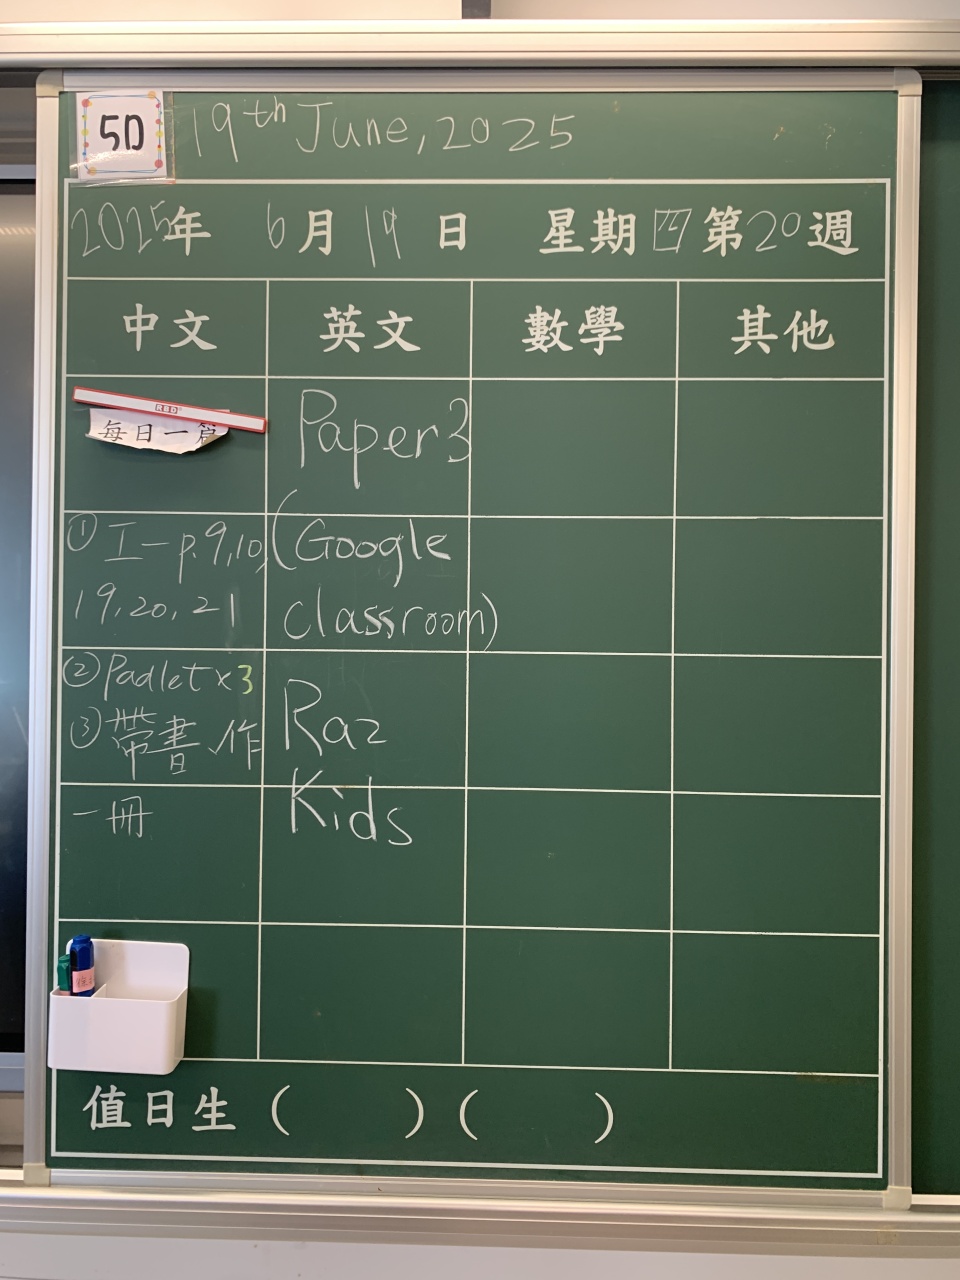 5D
19th June, 2025
2025年 6月19日 星期四 第20週
中文 英文 數學 其他
RBD
每日一篇
Paper 3
(Google
classroom)
① 工一 p.9,10,
19,20,21
② Padlet x 3
③ 帶書、作
一冊
Raz
Kids
值日生 ( ) ( )